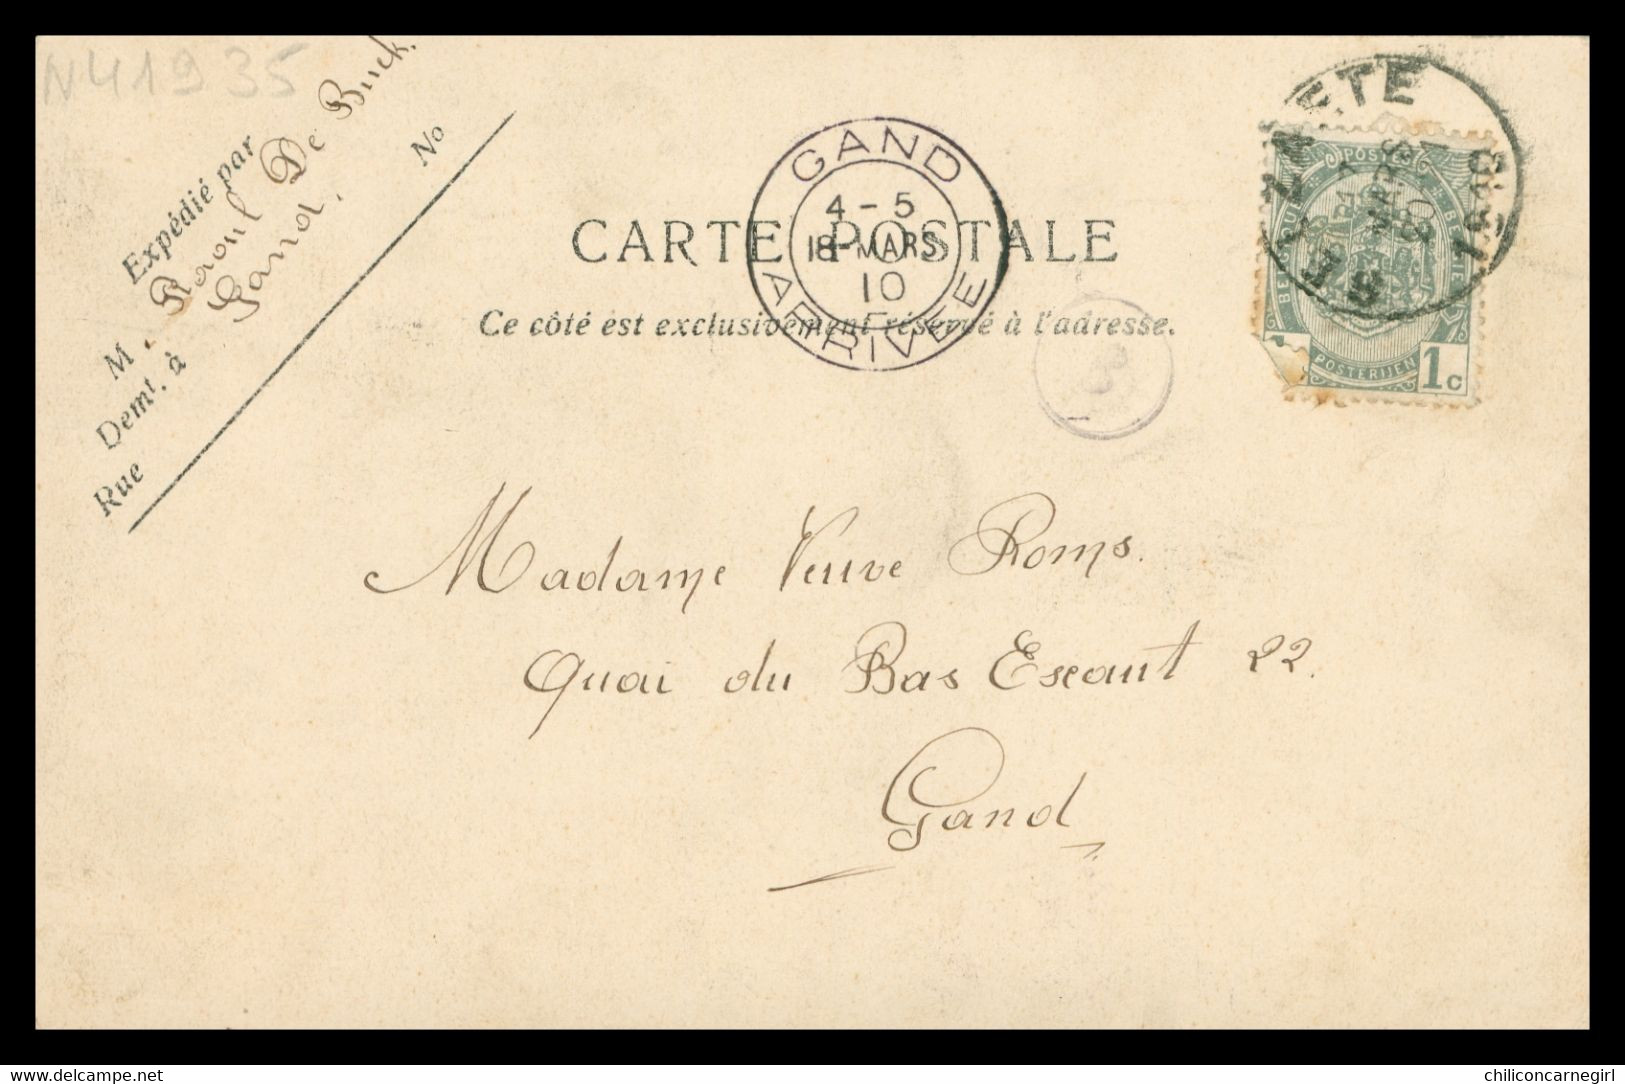 N41935
Expédié par
M. Raoul De Buck.
Demt. à Gand.
Rue No
GAND
4-5
18 MARS
10
ARRIVEE
CARTE POSTALE
Ce côté est exclusivement réservé à l'adresse.
3
POSTES
BELGIQUE
BELGIE
POSTERIJEN
1c
MARS
Madame Veuve Roms.
Quai du Bas Escaut 22.
Gand
www.delcampe.net
chiliconcarnegirl